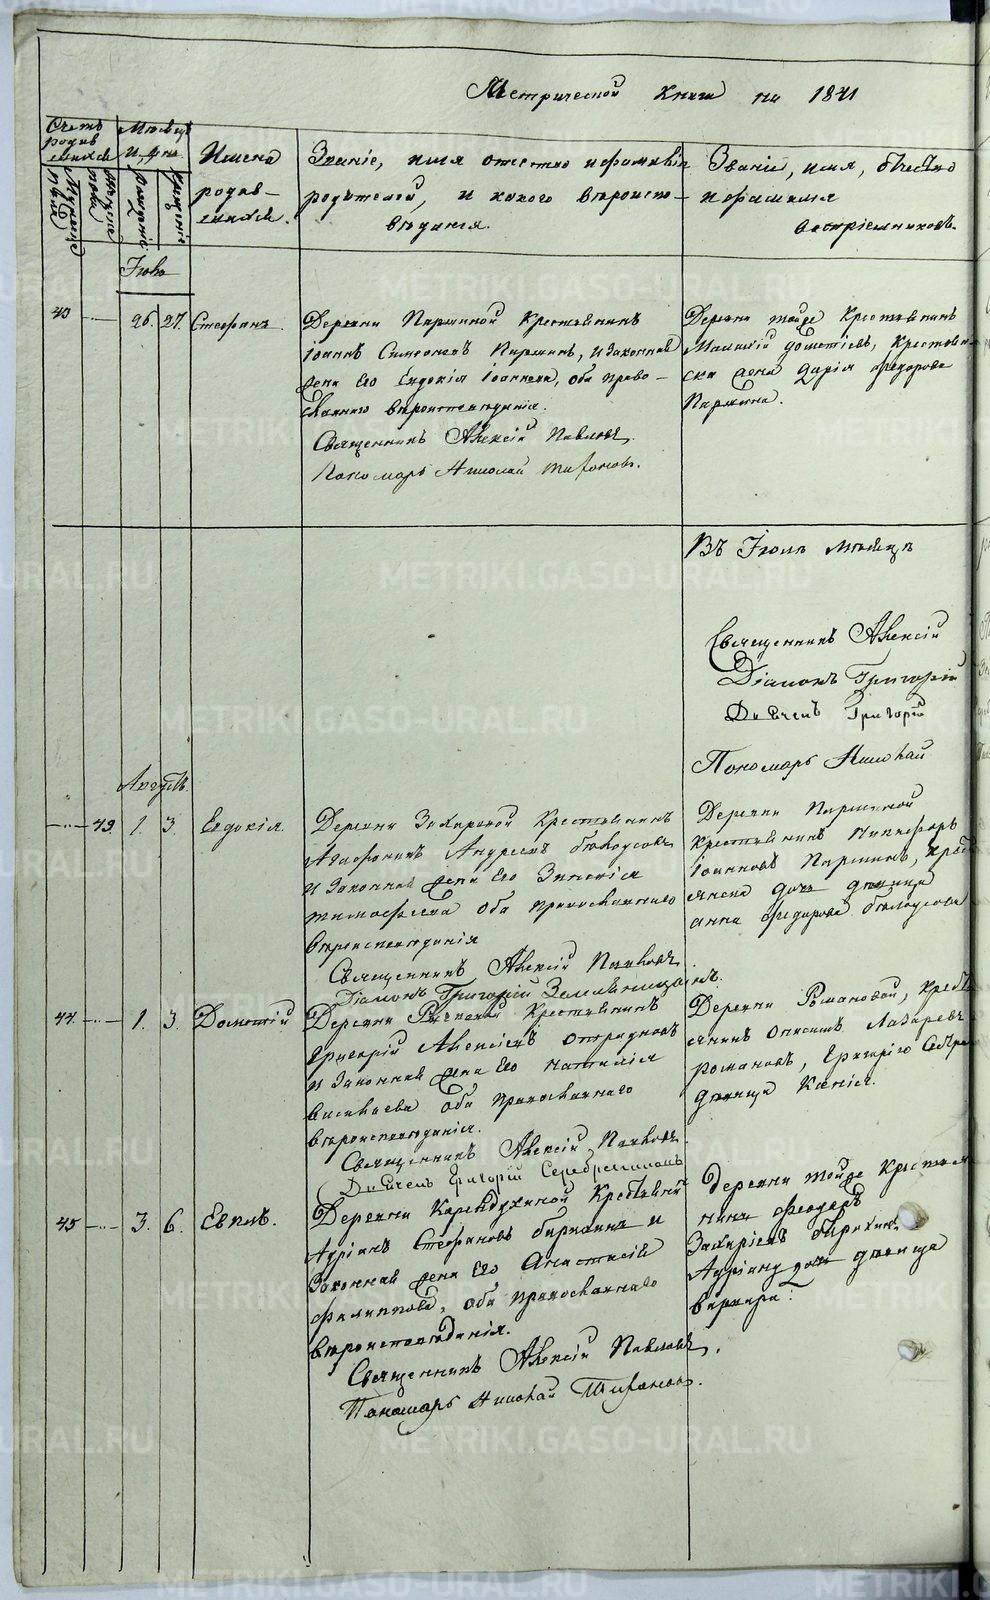 Метрической книги на 1841
Счетъ родив шихся
Мужеска пола
Женска пола
Месяцъ и дни
Рожденія
Крещенія
Имена
родив-
шихся.
Званіе, имя отчество и фамилія
родителей, и какого вѣроиспо-
вѣданія.
Званіе, имя, отчество
и фамилія
воспріемниковъ.
Іюль
43 26. 27. Стефанъ
Деревни Паршиной Крестьянинъ
Іоаннъ Симеоновъ Паршинъ, и законная
жена его Евдокія Іоаннова, оба право-
славнаго вѣроисповѣданія.
Священникъ Алексій Павловъ
Пономарь Николай
Деревни тойже Крестьянинъ
Дометіевъ, Крестьян-
ска жена Дарія Федорова
Паршина.
Въ Іюлѣ месяцѣ
Священникъ Алексій
Діаконъ Григорій
Дьячекъ Григорій
Пономарь Николай
Августъ
43. 1. 3. Евдокія.
Деревни Захаровой Крестьянинъ
Агафоникъ Андреевъ Бѣлоусовъ
и законная жена его Зиновія
Тимофеева оба православнаго
вѣроисповѣданія
Священникъ Алексій Павловъ
Діаконъ Григорій Земляницынъ.
Деревни Паршиной
крестьянинъ Никифоръ
Іоанновъ Паршинъ, крест
янска дочь девица
Анна Федорова Бѣлоусова
44 1. 3. Дометій
Деревни Крестьянинъ
Григорій Алексіевъ
и законная жена его Наталія
Васильева оба православнаго
вѣроисповѣданія.
Священникъ Алексій Павловъ
Дьячекъ Григорій Серебренниковъ
Деревни Романовой, крест
янинъ Лазаревъ
Романовъ, Григорія
девица Ксенія.
45 3. 6. Евплъ.
Деревни Крестьянинъ
Адріанъ Стефановъ и
законная жена его Анастасія
Филиппова, оба православнаго
вѣроисповѣданія.
Священникъ Алексій Павловъ.
Пономарь Николай
Деревни тойже Крестья
нинъ Феодоръ
Захаріевъ
Адріану дочь девица
Варвара.
METRIKI.GASO-URAL.RU